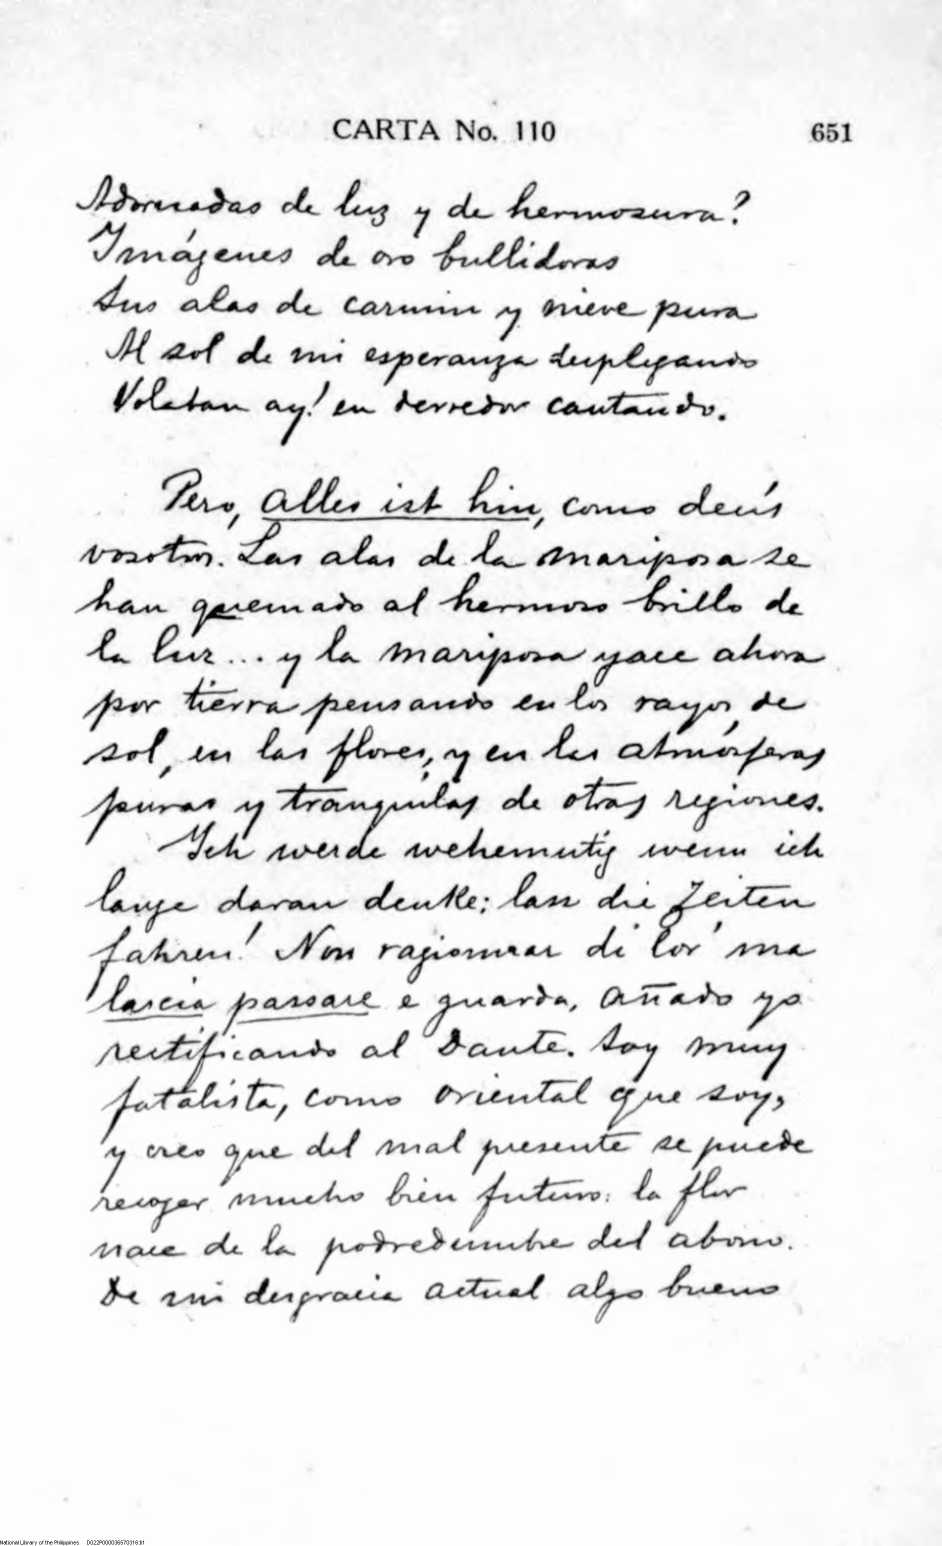 CARTA No. 110 651
Adornadas de luz y de hermosura?
Imágenes de oro bullidoras
Sus alas de carmín y nieve pura
Al sol de mi esperanza desplegando
Volaban ay! en derredor cantando.
Pero, Alles ist hin, como decís
vosotros. Las alas de la mariposa se
han quemado al hermoso brillo de
la luz... y la mariposa yace ahora
por tierra pensando en los rayos de
sol, en las flores, y en las atmósferas
puras y tranquilas de otras regiones.
Ich werde wehemutig wenn ich
lange daran denke; lass die Zeiten
fahren! Non ragionar di lor' ma
lascia passare e guarda, añado yo
rectificando al Dante. Soy muy
fatalista, como oriental que soy,
y creo que del mal presente se puede
recoger mucho bien futuro: la flor
nace de la podredumbre del abono.
De mi desgracia actual algo bueno
National Library of the Philippines D022P000036570316.tif